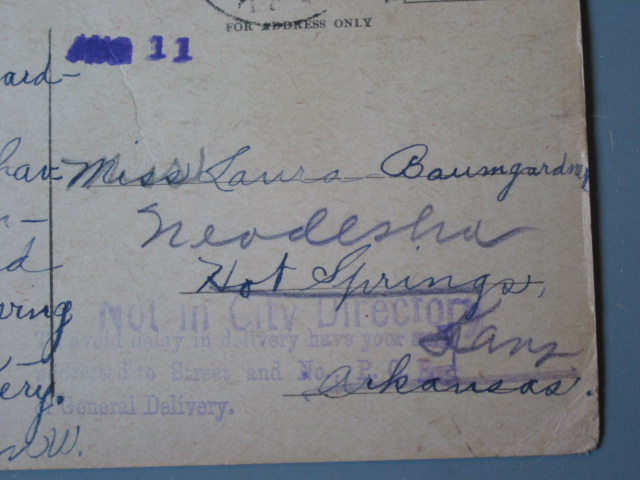 FOR ADDRESS ONLY
AUG 11
ard-
hav
Miss Laura Baumgardner
Neodesha
d
Hot Springs,
Not in City Directory
Kans
To avoid delay in delivery have your mail
directed to Street and No., P. O. Box
or General Delivery.
Arkansas.
ery.
W.